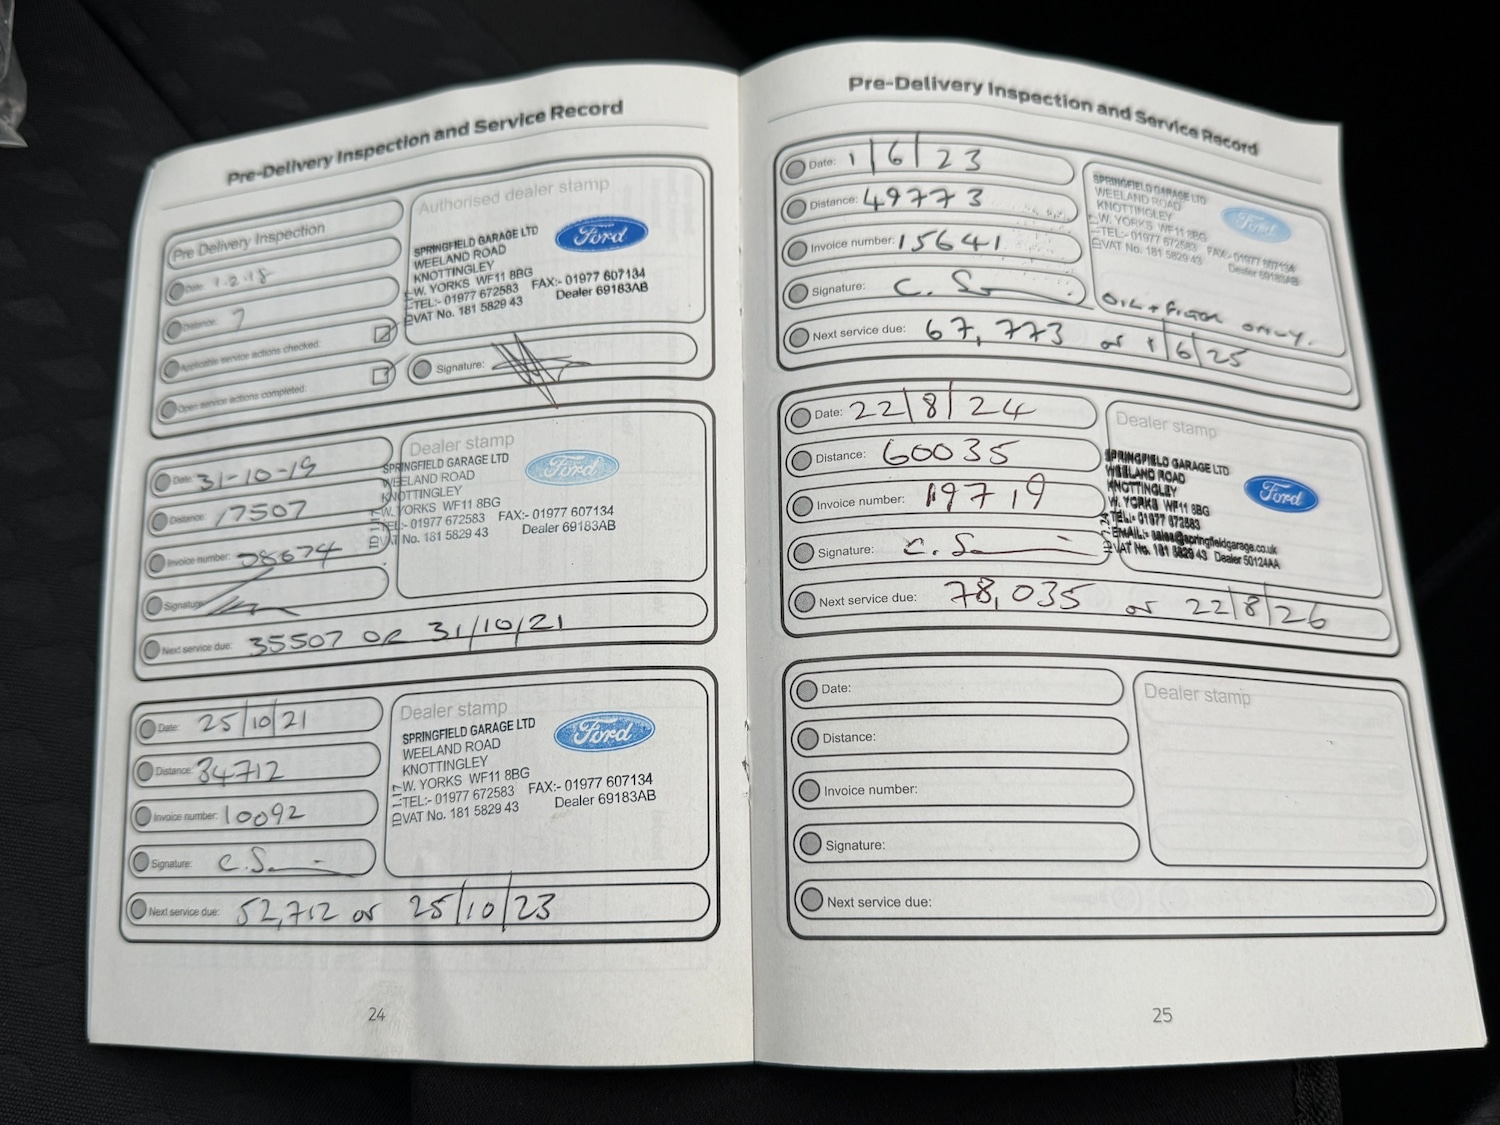 Pre-Delivery Inspection and Service Record
Pre Delivery Inspection
Date: 1.2.18
Distance: 7
Applicable service actions checked:
Open service actions completed:
Authorised dealer stamp
SPRINGFIELD GARAGE LTD
WEELAND ROAD
KNOTTINGLEY
W. YORKS WF11 8BG
TEL:- 01977 672583 FAX:- 01977 607134
VAT No. 181 5829 43 Dealer 69183AB
Ford
Signature:
Date: 31-10-19
Distance: 17507
Invoice number: 08674
Signature:
Next service due: 35507 OR 31/10/21
Dealer stamp
SPRINGFIELD GARAGE LTD
WEELAND ROAD
KNOTTINGLEY
W. YORKS WF11 8BG
TEL:- 01977 672583 FAX:- 01977 607134
VAT No. 181 5829 43 Dealer 69183AB
Ford
Date: 25/10/21
Distance: 34712
Invoice number: 10092
Signature: C. S
Next service due: 52,712 or 25/10/23
Dealer stamp
SPRINGFIELD GARAGE LTD
WEELAND ROAD
KNOTTINGLEY
W. YORKS WF11 8BG
TEL:- 01977 672583 FAX:- 01977 607134
VAT No. 181 5829 43 Dealer 69183AB
Ford
24
Pre-Delivery Inspection and Service Record
Date: 1/6/23
Distance: 49773
Invoice number: 15641
Signature: C. S
Next service due: 67,773 or 1/6/25
SPRINGFIELD GARAGE LTD
WEELAND ROAD
KNOTTINGLEY
W. YORKS WF11 8BG
TEL:- 01977 672583 FAX:- 01977 607134
VAT No. 181 5829 43 Dealer 69183AB
Ford
OIL + FILTER ONLY.
Date: 22/8/24
Distance: 60035
Invoice number: 19719
Signature: C. S
Next service due: 78,035 or 22/8/26
Dealer stamp
SPRINGFIELD GARAGE LTD
WEELAND ROAD
KNOTTINGLEY
W. YORKS WF11 8BG
TEL:- 01977 672583
EMAIL:- sales@springfieldgarage.co.uk
VAT No. 181 5829 43 Dealer 50124AA
Ford
Date:
Distance:
Invoice number:
Signature:
Next service due:
Dealer stamp
25